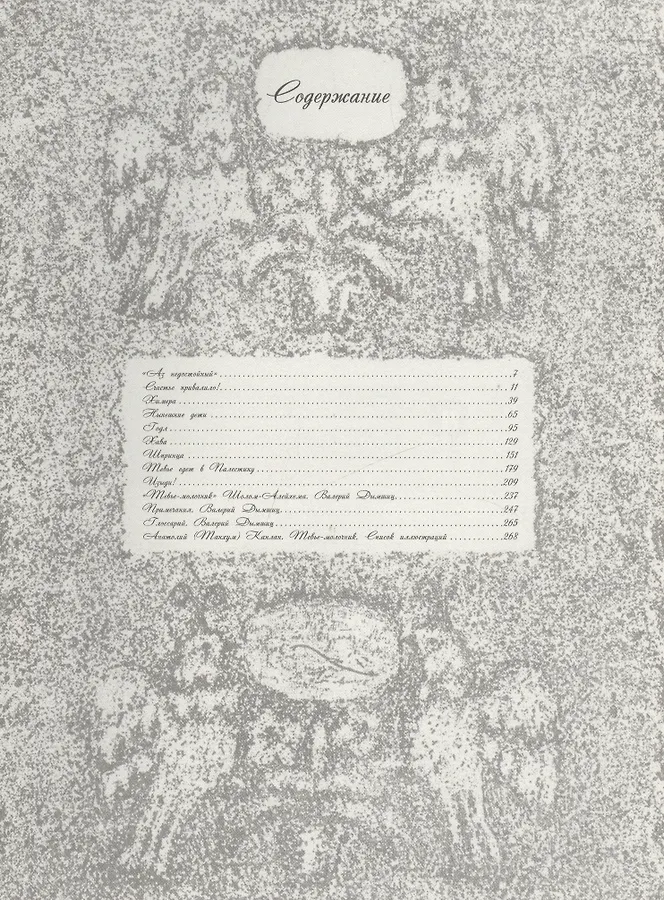 Содержание
«Аз недостойный» 7
Счастье привалило! 11
Химера 39
Нынешние дети 65
Годл 95
Хава 129
Шпринца 151
Тевье едет в Палестину 179
Изыди! 209
«Тевье-молочник» Шолом-Алейхема, Валерий Дымшиц 237
Примечания, Валерий Дымшиц 247
Глоссарий, Валерий Дымшиц 265
Анатолий (Танхум) Каплан, Тевье-молочник, Список иллюстраций 268